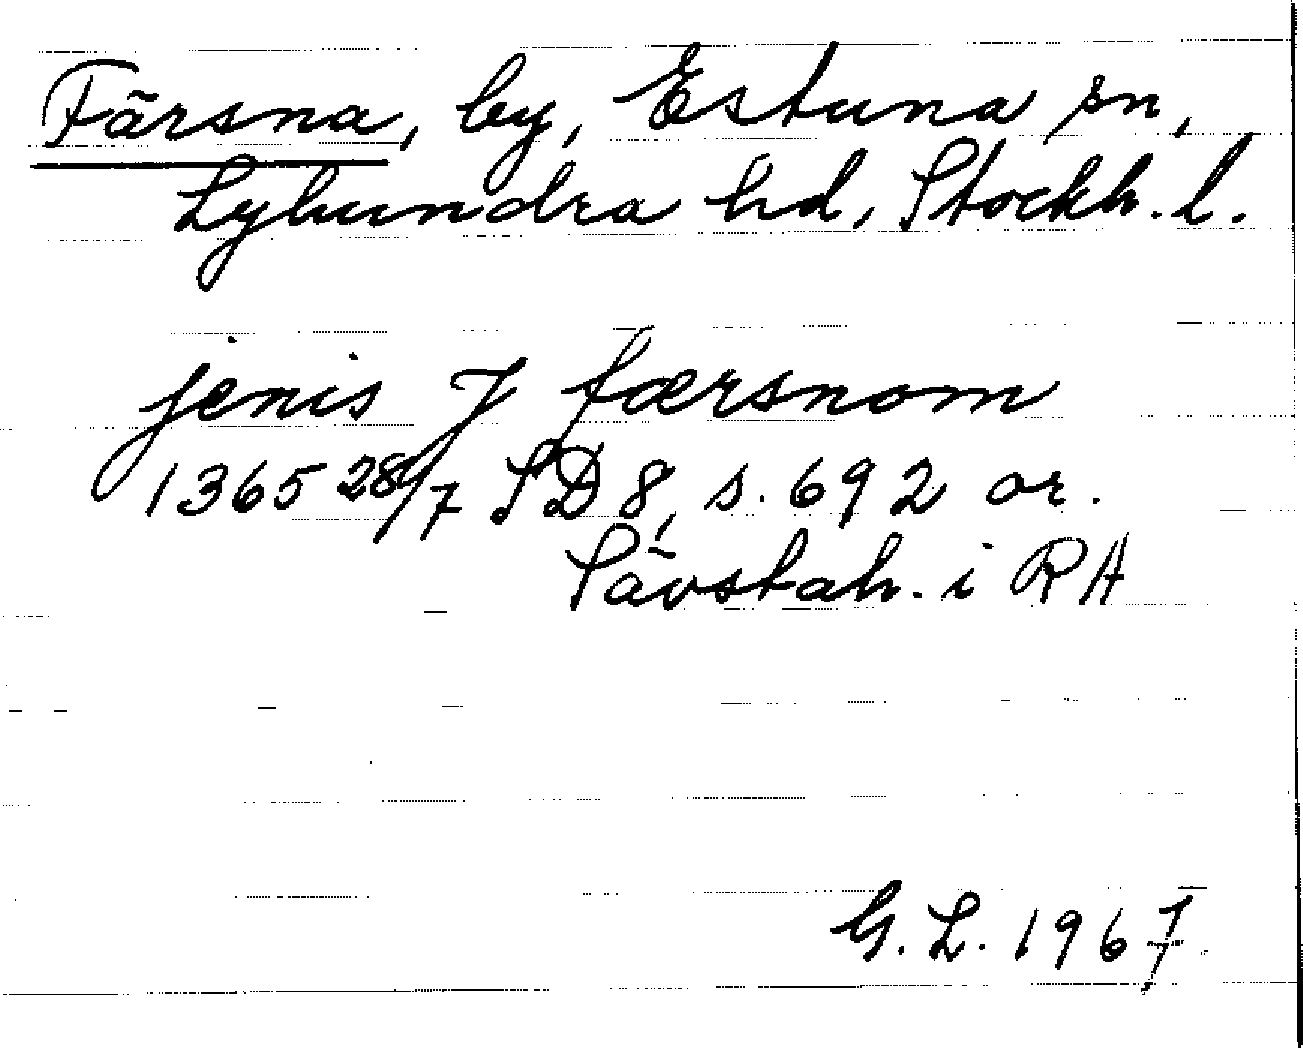 Färsna, by, Estuna sn,
Lyhundra hd, Stockh. l.
jenis J færsnom
1365 28/7 SD 8, s. 692 or.
Sävstah. i RA
G. L. 1967